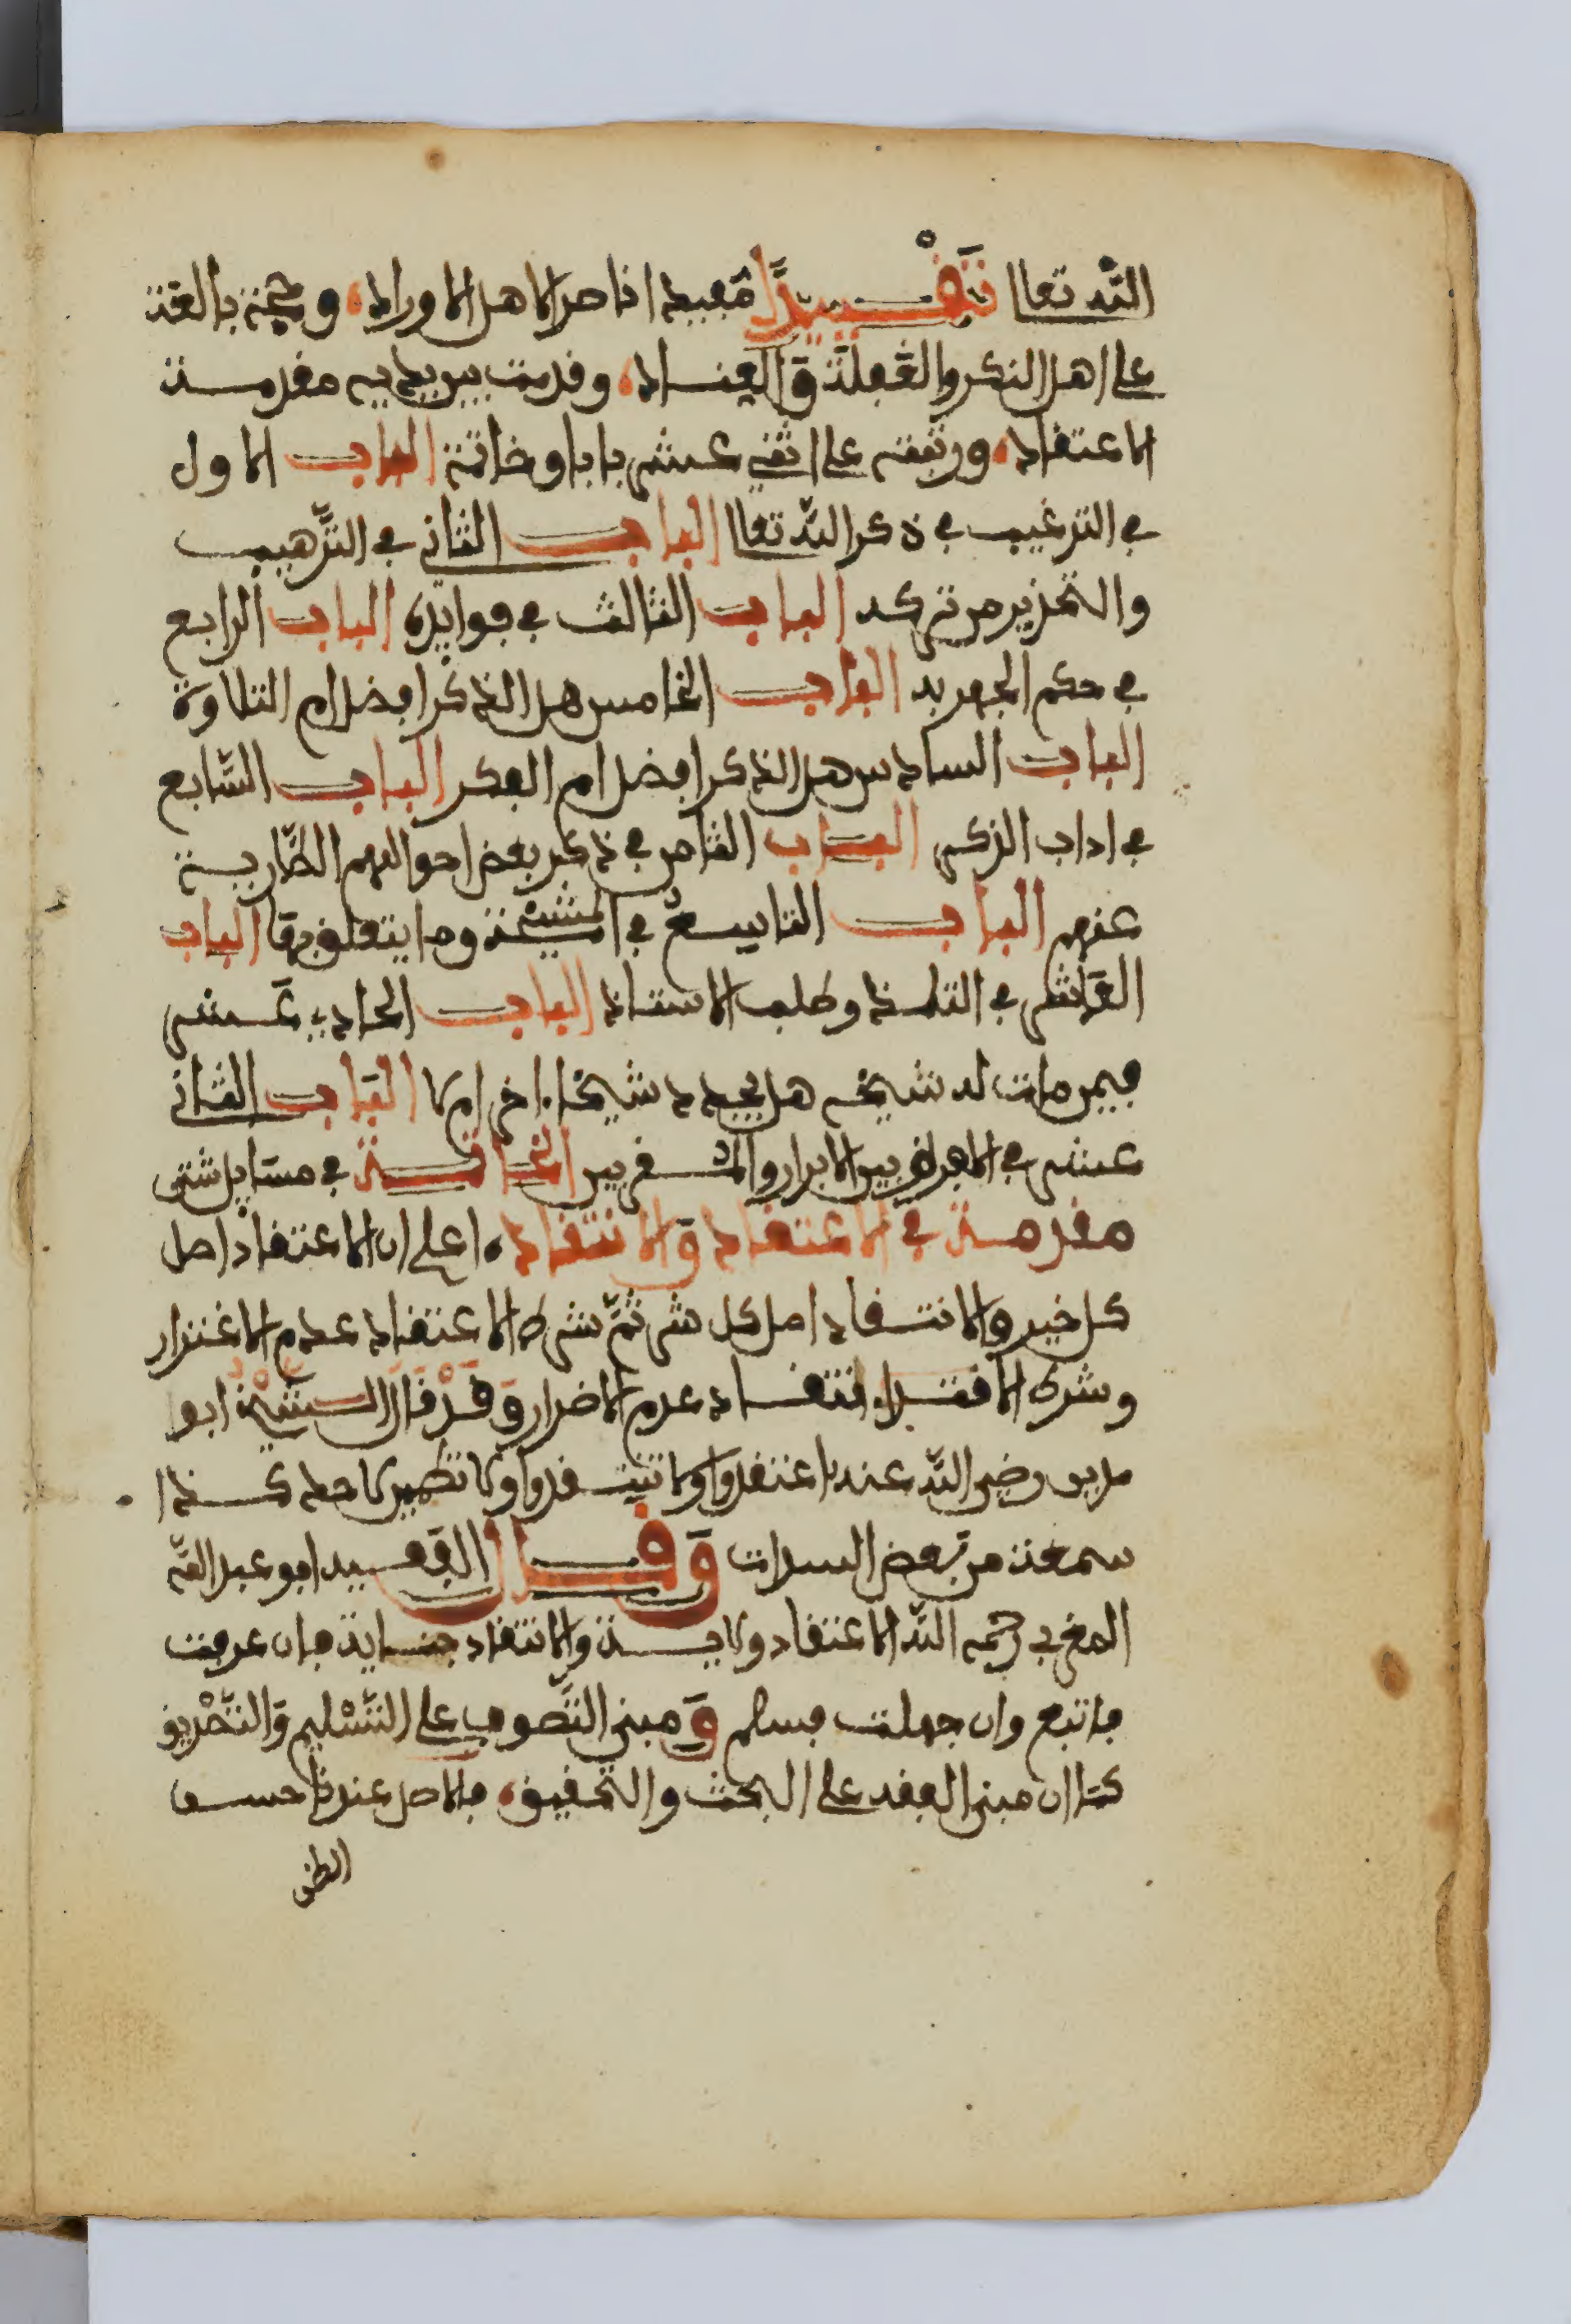 الله تعالى تقييدا مفيدا ناصرا لاهل الاوراد، وحجة بالغة
على اهل النكر والغفلة والعناد، وقدمت بين يديه مقدمة
الاعتقاد، ورتبته على اثني عشر بابا وخاتمة الباب الاول
في الترغيب في ذكر الله تعالى الباب الثاني في الترهيب
والتحذير من تركه الباب الثالث في فوايده الباب الرابع
في حكم الجهر به الباب الخامس هل الذكر افضل ام التلاوة
الباب السادس هل الذكر افضل ام الفكر الباب السابع
في اداب الذكر الباب الثامن في ذكر بعض احوالهم الطارية
عنهم الباب التاسع في المشيخة وما يتعلق بها الباب
العاشر في التلمذ وطلب الاستاذ الباب الحادي عشر
فيمن مات له شيخه هل يجدد شيخا اخر ام لا الباب الثاني
عشر في الفراق بين الابرار والمقربين الخاتمة في مسايل شتى
مقدمة في الاعتقاد والانتقاد، اعلم ان الاعتقاد اصل
كل خير والانتقاد اصل كل شر ثم شرط الاعتقاد عدم الاغترار
وشرط الانتقاد عدم الاضرار وقد قال الشيخ ابو
مدين رضي الله عنه اعتقدوا ولا تنتقدوا ولا تطمين لاحد كذا
سمعته من بعض السدات وقال الفقيه ابو عبد الله
المغربي رحمه الله الاعتقاد ولاية والانتقاد جناية فان عرفت
فاتبع وان جهلت فسلم ومبنى التصوف على التسليم والتصديق
كما ان مبنى الفقه على البحث والتحقيق، فالاصل عندنا حسن
الظن